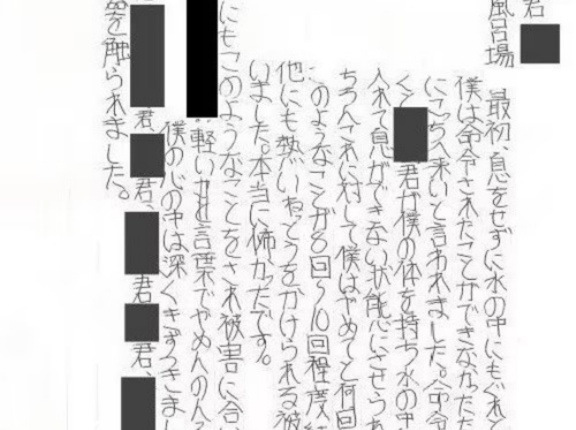 君
風呂場 最初、息をせずに水の中にもぐれと
僕は命令されたことができなかったた
にこっちへ来いと言われました。命令
く 君が僕の体を持ち水の中
入れて息ができない状態にさせられ
これに対して僕はやめてと何回
このようなことが8回〜10回程度
他にも熱いねっとうをかけられる被
いました。本当に怖かったです。
にもこのようなことをされ被害に合い
軽い 言葉でやめ
僕の心の中は深くきずつきまし
君、 君、 君 君、
器を触られました。